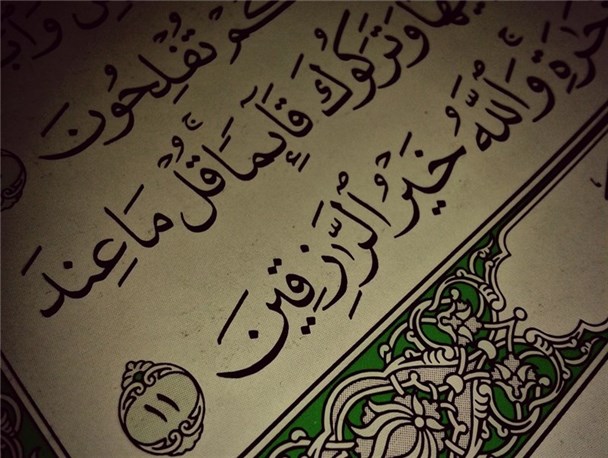 كُمْ تُفْلِحُونَ
هَا وَتَرَكُوكَ قَآئِمًا قُلْ مَا عِندَ
جَٰرَةِ وَٱللَّهُ خَيْرُ ٱلرَّٰزِقِينَ
١١